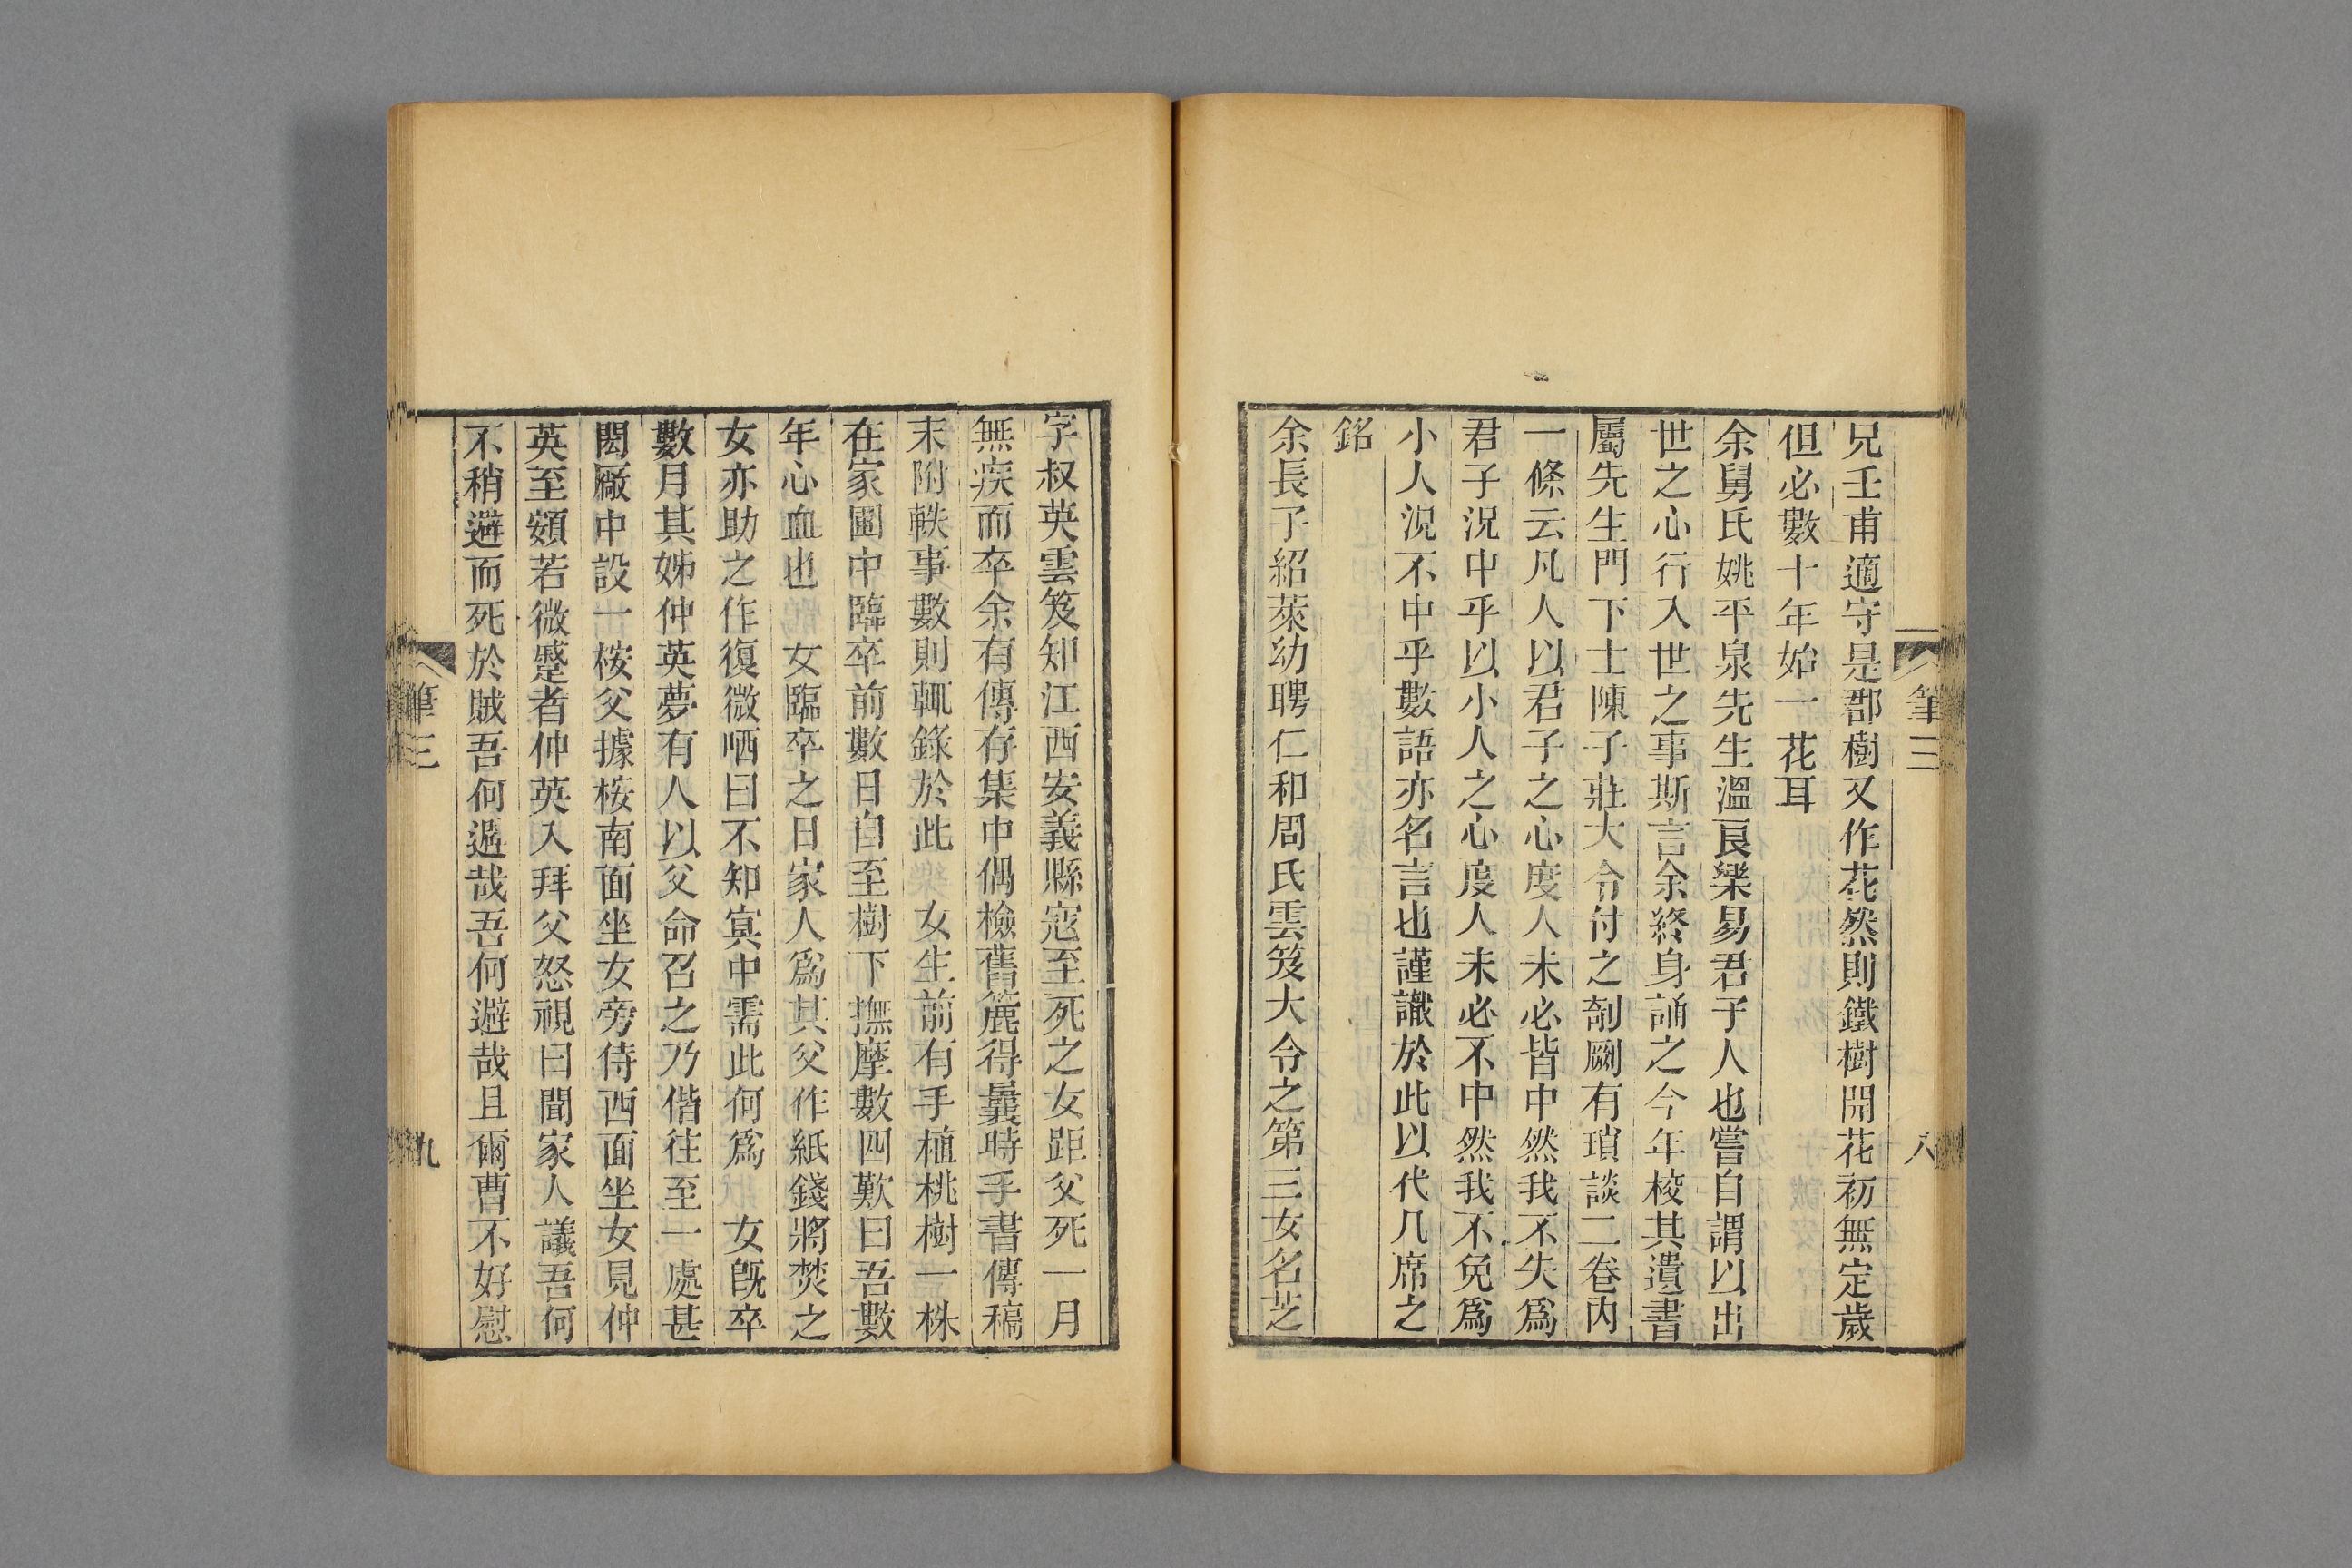 兄壬甫適守是郡樹又作花然則鐵樹開花初無定歲
但必數十年始一花耳
余舅氏姚平泉先生溫良樂易君子人也嘗自謂以出
世之心行入世之事斯言余終身誦之今年校其遺書
屬先生門下士陳子莊大令付之剞劂有瑣談二卷內
一條云凡人以君子之心度人未必皆中然我不失爲
君子況中乎以小人之心度人未必不中然我不免爲
小人況不中乎數語亦名言也謹識於此以代几席之
銘
余長子紹萊幼聘仁和周氏雲笈大令之第三女名芝
筆三
八
字叔英雲笈知江西安義縣寇至死之女距父死一月
無疾而卒余有傳存集中偶檢舊簏得曩時手書傳稿
末附軼事數則輒錄於此 女生前有手植桃樹一株
在家園中臨卒前數日自至樹下撫摩數四歎曰吾數
年心血也 女臨卒之日家人爲其父作紙錢將焚之
女亦助之作復微哂曰不知冥中需此何爲 女旣卒
數月其姊仲英夢有人以父命召之乃偕往至一處甚
閎厰中設一桉父據桉南面坐女旁侍西面坐女見仲
英至頞若微蹙者仲英入拜父怒視曰聞家人議吾何
不稍避而死於賊吾何過哉吾何避哉且爾曹不好慰
筆三
九